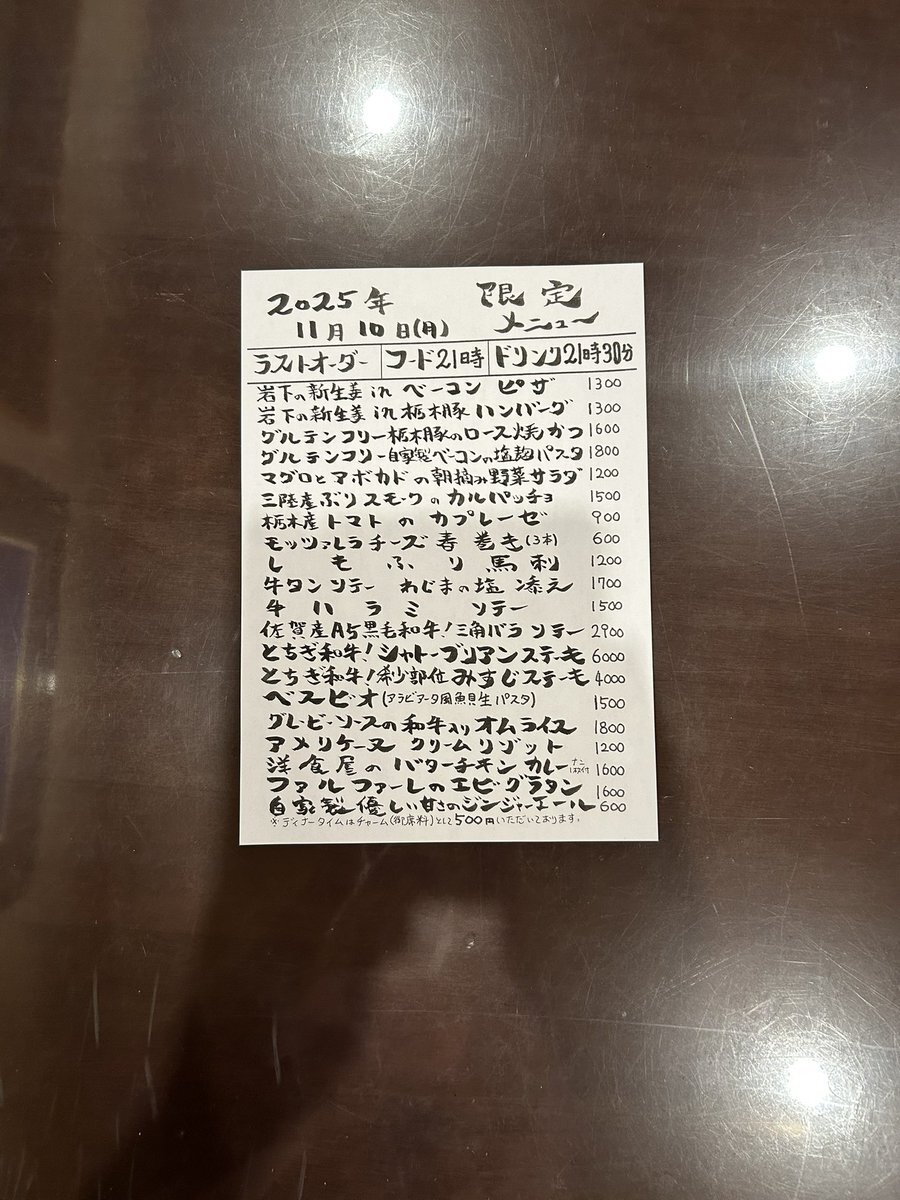 2025年 限定
11月10日(月) メニュー
ラストオーダー フード21時 ドリンク21時30分
岩下の新生姜in ベーコン ピザ 1300
岩下の新生姜in栃木豚ハンバーグ 1300
グルテンフリー栃木豚のロース焼かつ 1600
グルテンフリー自家製ベーコンの塩麹パスタ 1800
マグロとアボカドの朝摘み野菜サラダ 1200
三陸産ぶりスモークのカルパッチョ 1500
栃木産トマトのカプレーゼ 900
モッツァレラチーズ春巻き(3本) 600
しもふり馬刺 1200
牛タンソテー わじまの塩添え 1700
牛ハラミソテー 1500
佐賀産A5黒毛和牛!三角バラソテー 2900
とちぎ和牛!シャトーブリアンステーキ 6000
とちぎ和牛!希少部位みすじステーキ 4000
ベスビオ(アラビアータ風魚貝生パスタ) 1500
グレービーソースの和牛入りオムライス 1800
アメリケーヌ クリームリゾット 1200
洋食屋のバターチキンカレー 1600
ファルファーレのエビグラタン 1600
自家製優しい甘さのジンジャーエール 600
※ディナータイムはチャーム(御席料)として500円いただいております。